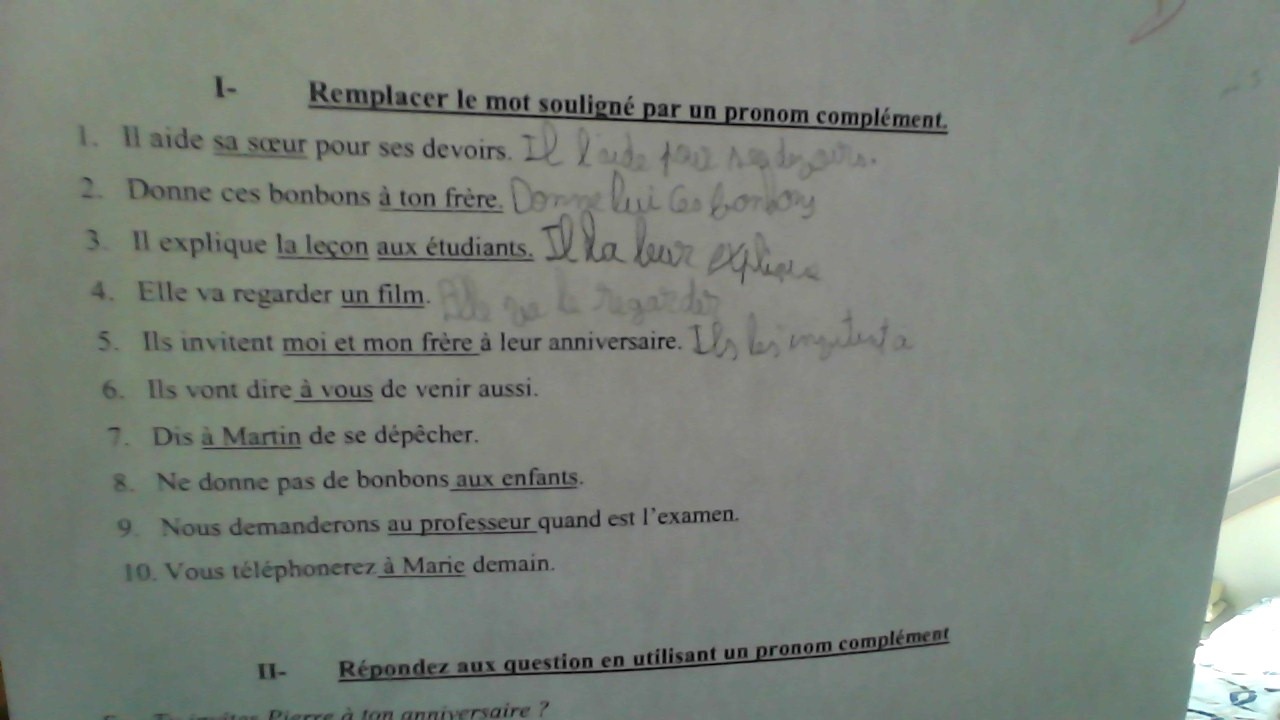 I- Remplacer le mot souligné par un pronom complément.
1. Il aide sa sœur pour ses devoirs. Il l'aide pour ses devoirs.
2. Donne ces bonbons à ton frère. Donne lui ces bonbons
3. Il explique la leçon aux étudiants. Il la leur explique
4. Elle va regarder un film. Elle va le regarder
5. Ils invitent moi et mon frère à leur anniversaire. Ils les invitent a
6. Ils vont dire à vous de venir aussi.
7. Dis à Martin de se dépêcher.
8. Ne donne pas de bonbons aux enfants.
9. Nous demanderons au professeur quand est l'examen.
10. Vous téléphonerez à Marie demain.
II- Répondez aux question en utilisant un pronom complément
Tu invites Pierre à ton anniversaire ?